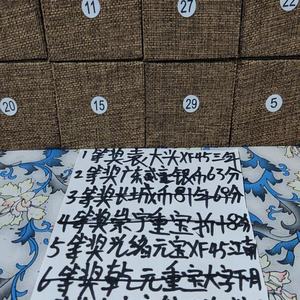 11
27
22
20
15
29
5
1等奖袁大头XF45三年
2等奖广东 银币63分
3等奖长城币81年69分
4等奖崇宁重宝折十8分
5等奖光绪元宝XF45江南
6等奖乾元重宝大字